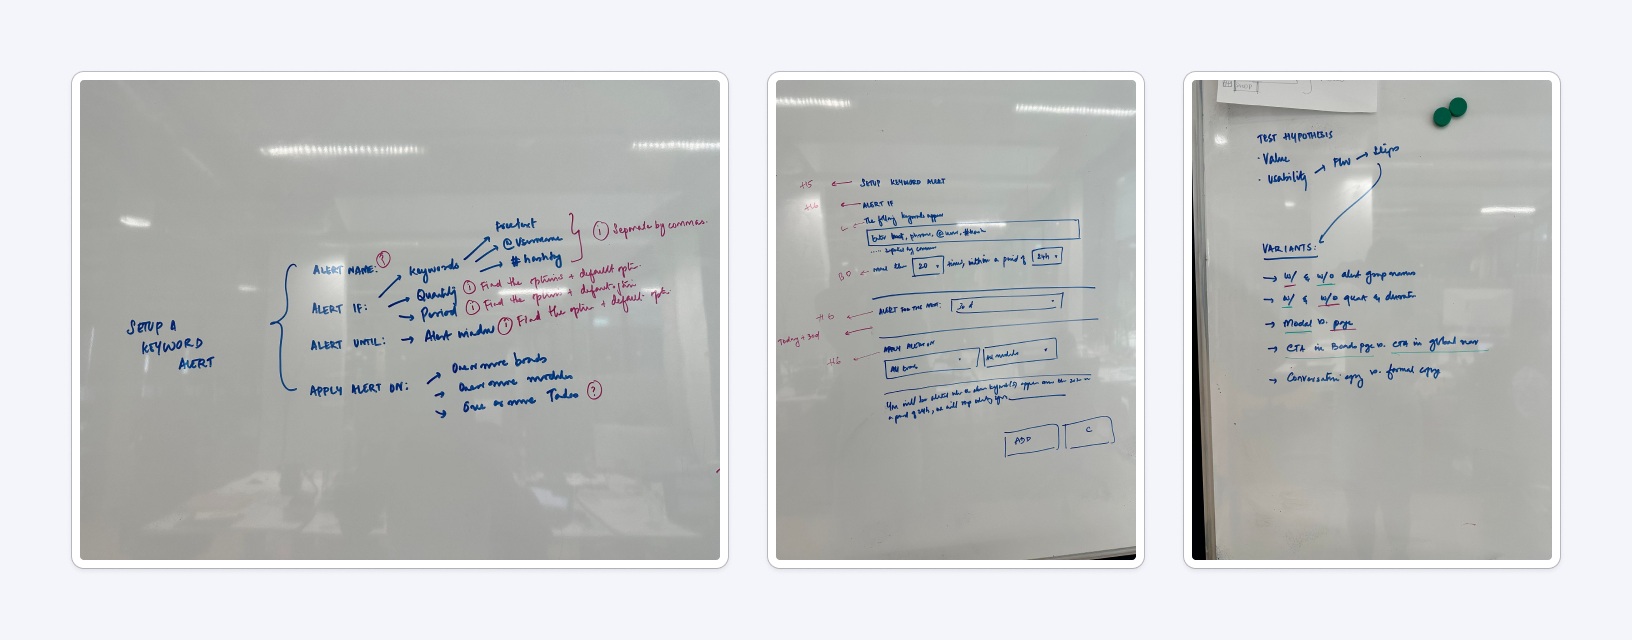 SETUP A
KEYWORD
ALERT
ALERT NAME: ?
ALERT IF:
Keywords
@Username
#hashtag
Separate by commas.
Quantity
Find the options + default optn.
Period
Find the options + default optn
ALERT UNTIL: → Alert window
Find the option + default optn.
APPLY ALERT ON:
One or more brands
One or more modules
One or more ?
H5 ← SETUP KEYWORD ALERT
H6 ← ALERT IF
The following keywords appear
Enter text, phrase, @user, #hash
more than 20 times, within a period of 24h
H6 ← ALERT FOR THE NEXT:
Today + 30d
H6 ← APPLY ALERT ON
All brands / All modules
You will be alerted when the above keyword(s) appear more than 20x in
a period of 24h, we will stop
ADD
C
TEST HYPOTHESIS
· Value
· Usability → Flow → Steps
VARIANTS:
→ w/ & w/o alert group names
→ w/ & w/o quant & duration
→ Modal vs. page
→ CTA in Boards page vs. CTA in global nav
→ Conversation copy vs. formal copy